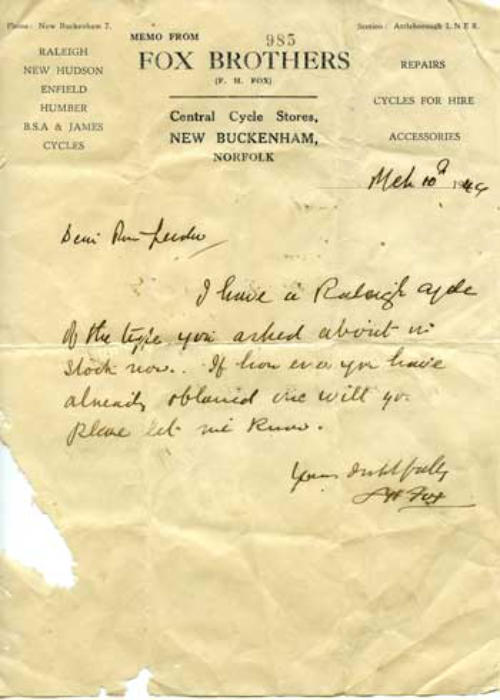 Phone: New Buckenham 7.
Station: Attleborough L.N.E.R.
MEMO FROM
985
FOX BROTHERS
(F. H. FOX)
Central Cycle Stores,
NEW BUCKENHAM,
NORFOLK
RALEIGH
NEW HUDSON
ENFIELD
HUMBER
B.S.A & JAMES
CYCLES
REPAIRS
CYCLES FOR HIRE
ACCESSORIES
Mch 10th 1944
I have a Raleigh cycle
of the type you asked about in
stock now. If how ever you have
already obtained one will you
please let me know.
Yours faithfully
FH Fox